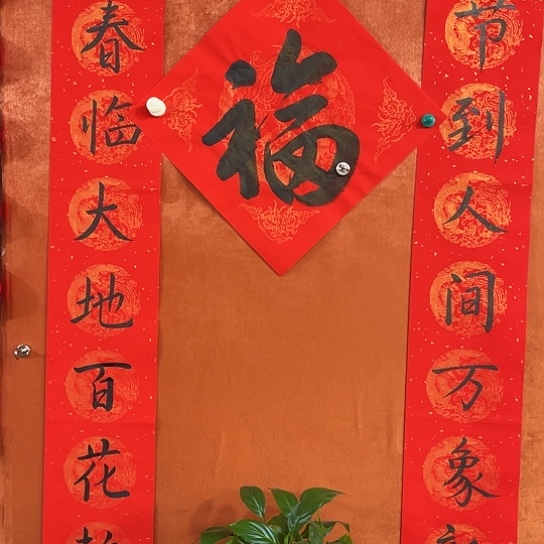 春临大地百花
福
节到人间万象